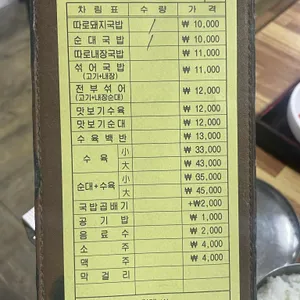 차림표 수량 가격
따로돼지국밥 / ₩ 10,000
순대국밥 / ₩ 10,000
따로내장국밥 ₩ 11,000
섞어국밥 ₩ 11,000
(고기+내장)
전부섞어 ₩ 12,000
(고기+내장순대)
맛보기수육 ₩ 12,000
맛보기순대 ₩ 12,000
수육백반 ₩ 13,000
수육 小 ₩ 33,000
大 ₩ 43,000
순대+수육 小 ₩ 35,000
大 ₩ 45,000
국밥곱배기 +₩2,000
공기밥 ₩ 1,000
음료수 ₩ 2,000
소주 ₩ 4,000
맥주 ₩ 4,000
막걸리